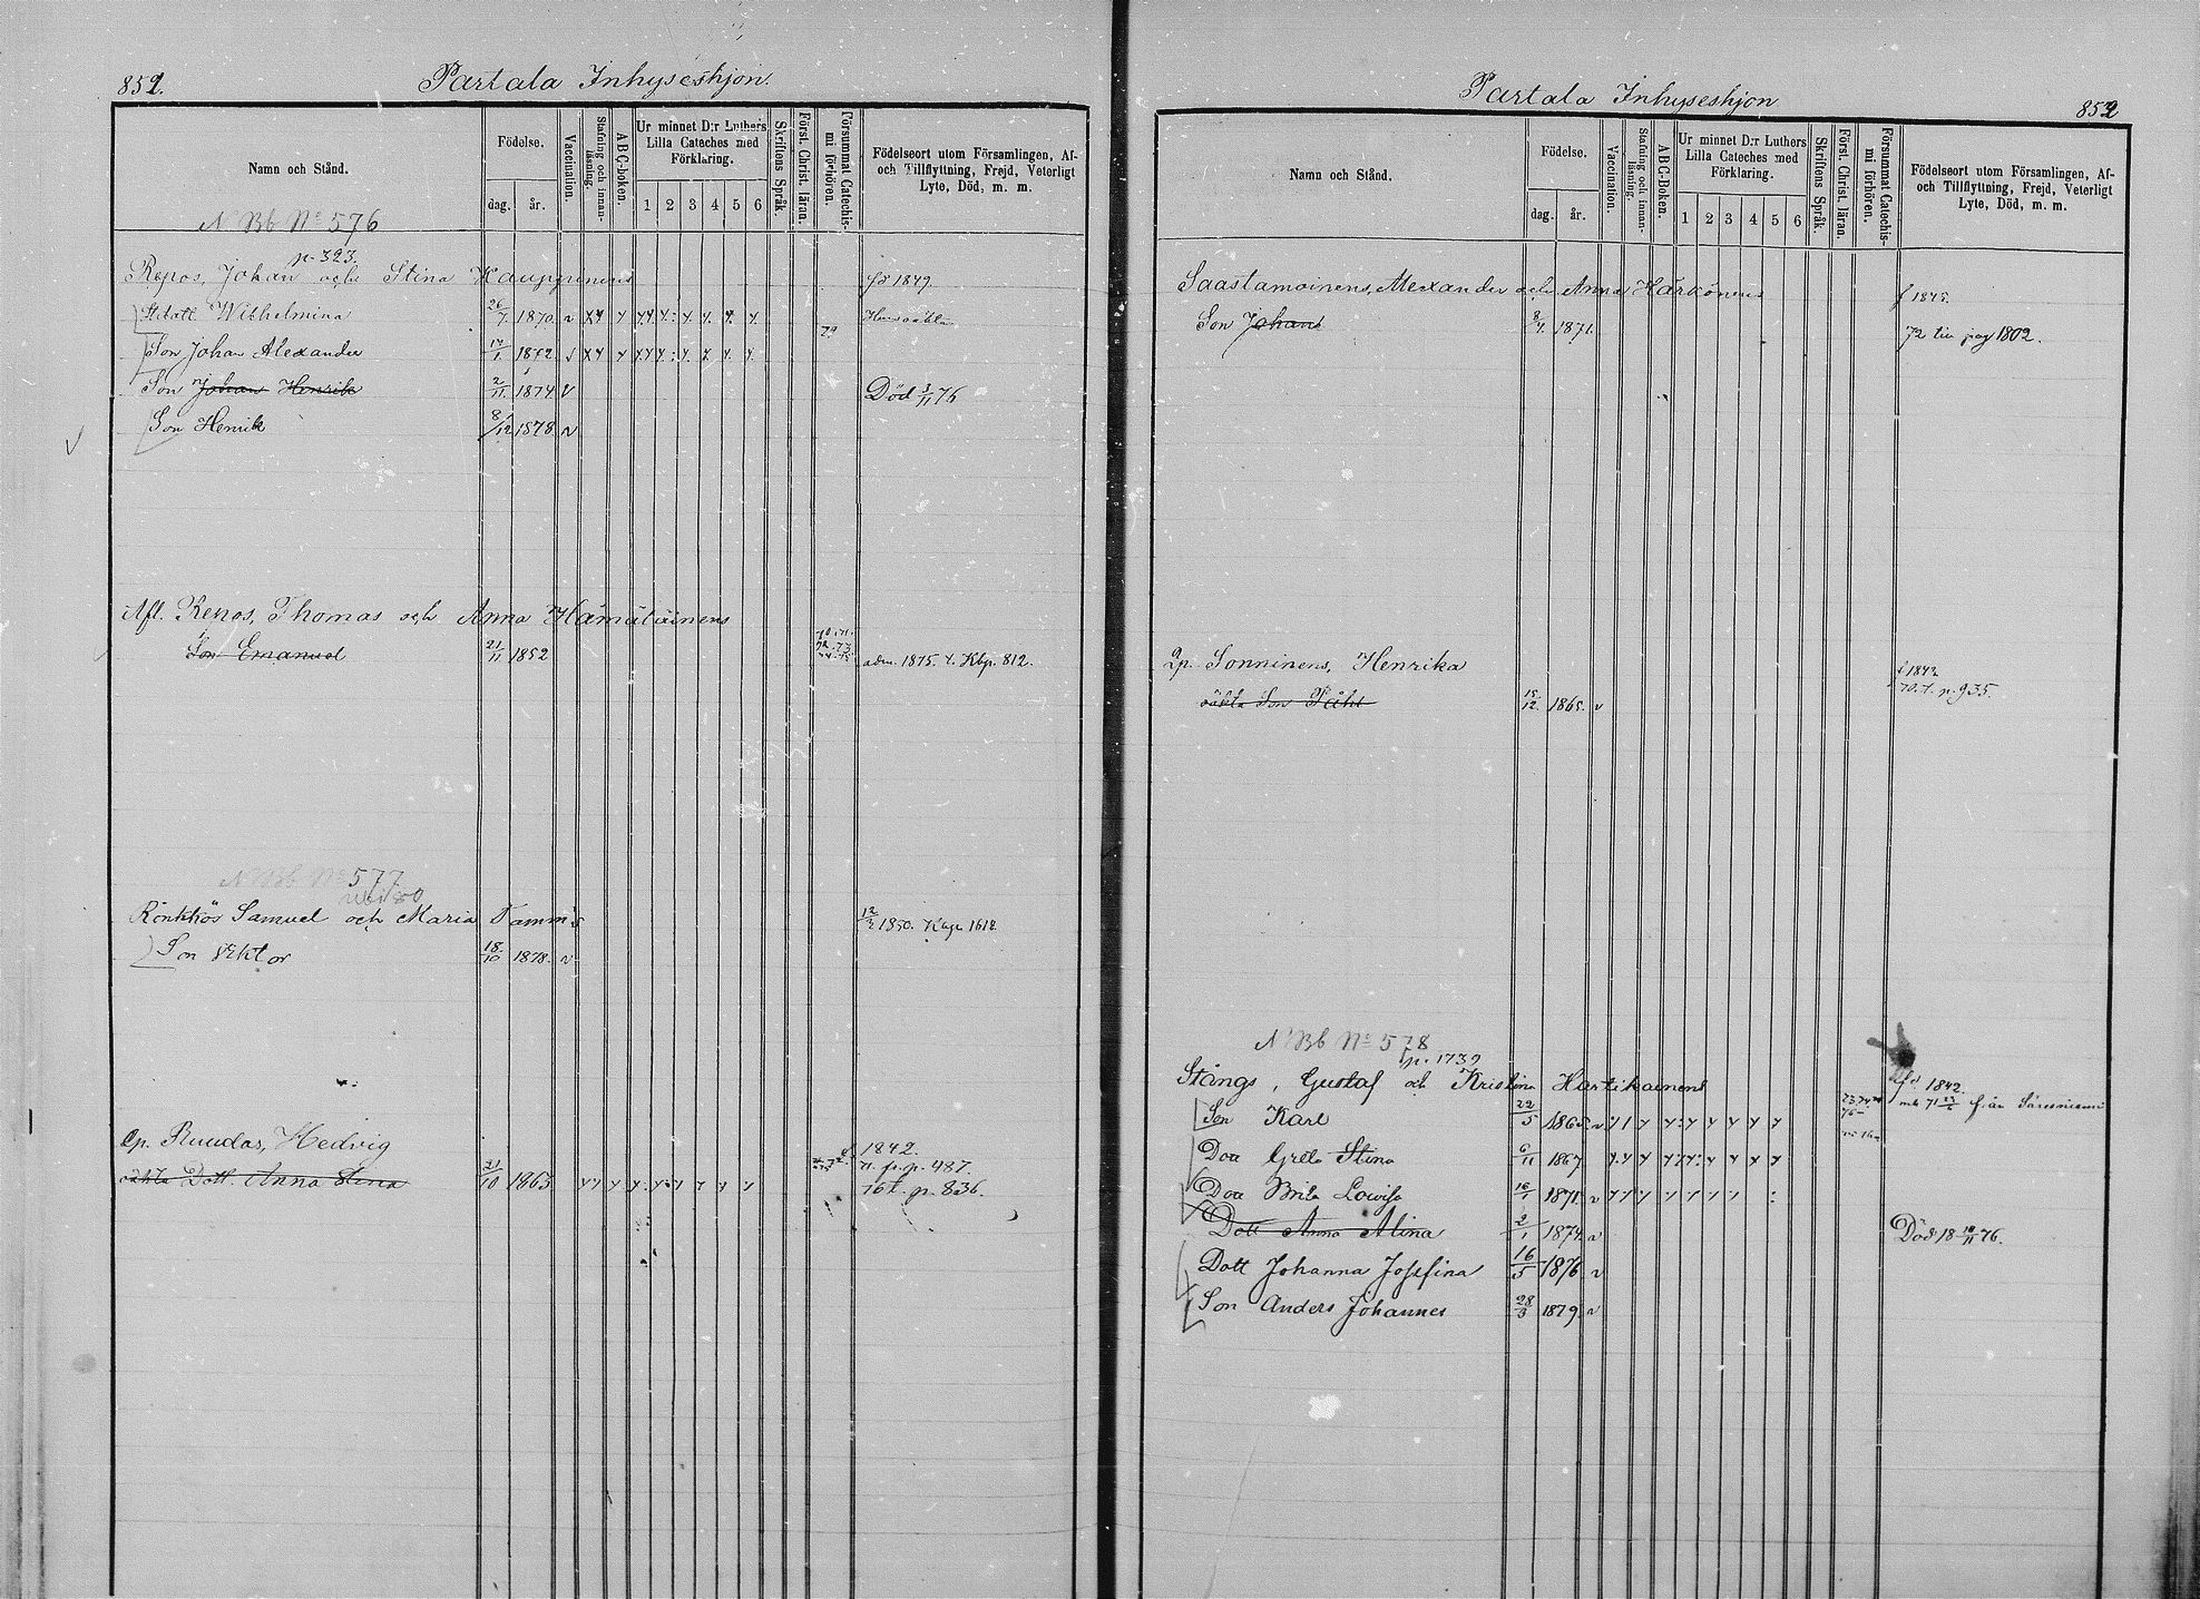 851.
Partala Inhyseshjon.
Namn och Stånd.
Födelse.
dag. år.
Vaccination.
Stafning och innanläsning.
ABC-boken.
Ur minnet D:r Luthers Lilla Cateches med Förklaring.
1 2 3 4 5 6
Skriftens Språk.
Först. Christ. läran.
Försummat Catechismi förhören.
Födelseort utom Församlingen, Af- och Tillflyttning, Frejd, Veterligt Lyte, Död, m. m.
N Bb No 576
p. 323.
Repos, Johan och Stina Kauppinens 1849.
Wilhelmina 26/7 1870
Son Johan Alexander 1872.
Son Johan Henrik 2/11 1874 Död 3/11 76
Son Henrik 8/12 1878
Afl. Repos, Thomas och Anna Hämäläinens
Son Emanuel 21/11 1852 adm. 1875. t. Kbp. 812.
N Bb No 577
Rönkkös Samuel och Maria Tammis 1850. 1612
Son Viktor 18/10 1878.
Ruudas, Hedvig 1842.
p. 487.
oäkta Dott. Anna Stina 21/10 1863 76 t. p. 836.
Partala Inhyseshjon
852
Namn och Stånd.
Födelse.
dag. år.
Vaccination.
Stafning och innanläsning.
ABC-Boken.
Ur minnet D:r Luthers Lilla Cateches med Förklaring.
1 2 3 4 5 6
Skriftens Språk.
Först. Christ. läran.
Försummat Catechismi förhören.
Födelseort utom Församlingen, Af- och Tillflyttning, Frejd, Veterligt Lyte, Död, m. m.
Saastamoinens, Alexander och Anna Härkönens f 1845.
Son Johan 8/7 1871. 72 till pag 1802.
Sonninens, Henrika
oäkta Son Påhl 15/12 1865. 70. t. p. 935.
N Bb No 578
p. 1739
Stångs, Gustaf och Kristina Hartikainens 1842.
Son Karl 22/5 1865 från
Doa Greta Stina 6/11 1867
Doa Brita Lovisa 16/1 1871.
Dott Anna Alina 2/1 1874 Död 18 76.
Dott Johanna Josefina 16/5 1876
Son Anders Johannes 28/3 1879